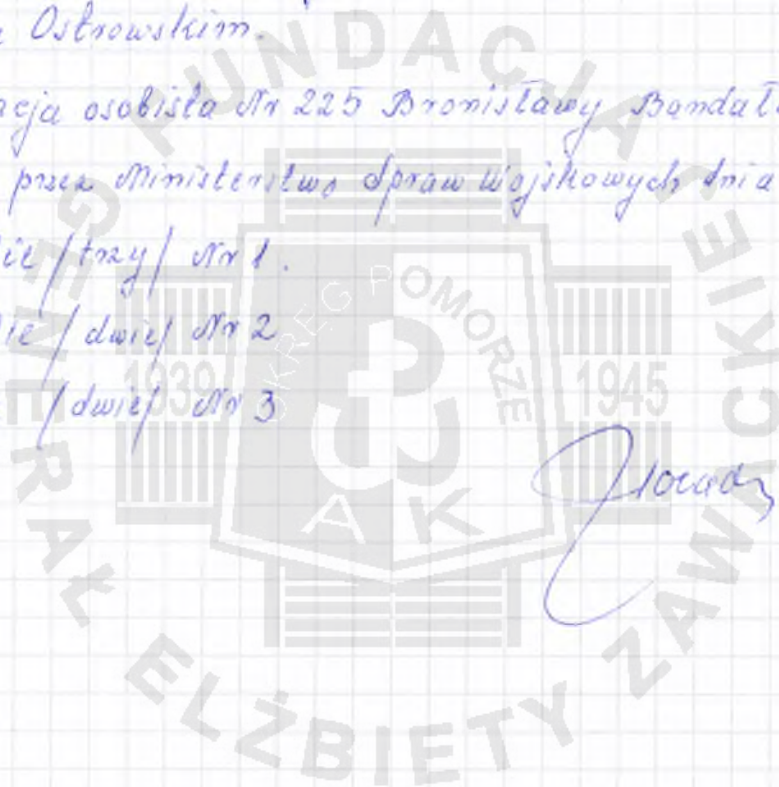 Ostrowskim.
acja osobista Nr 225 Bronisławy Bandał
przez Ministerstwo Spraw Wojskowych dnia
/trzy/ Nr 1.
/dwie/ Nr 2
/dwie/ Nr 3
FUNDACJA
GENERAŁ ELŻBIETY ZAWACKIEJ
OKRĘG POMORZE
1939 1945
AK